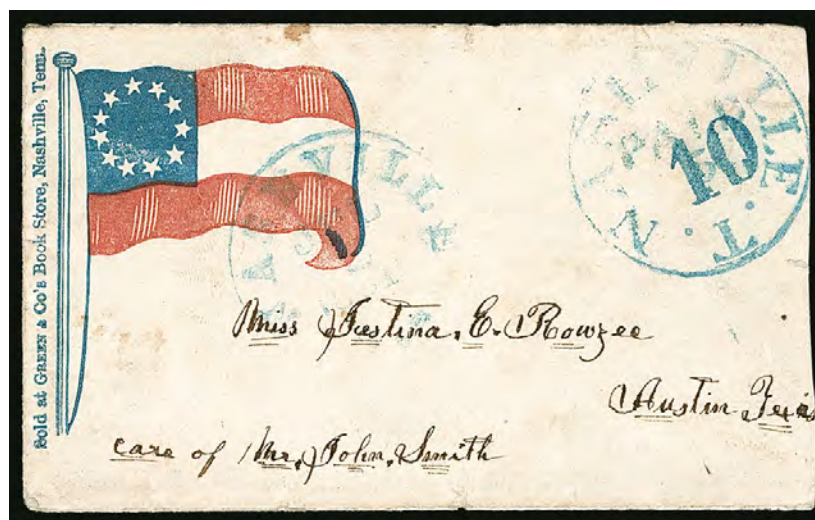 Sold at GREEN & Co's Book Store, Nashville, Tenn.
NASHVILLE
NASHVILLE . T .
PAID
10
Miss Justina. E. Rowzee
Austin Texas
care of Mr. John. Smith